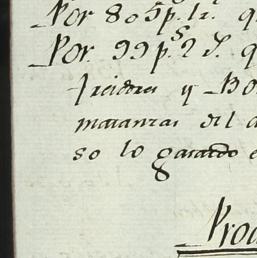 Por 805 p.s 1 r. q
Por. 99 p.s 2 r. q
y Bo
matanzas del a
so lo gastado e
Prod